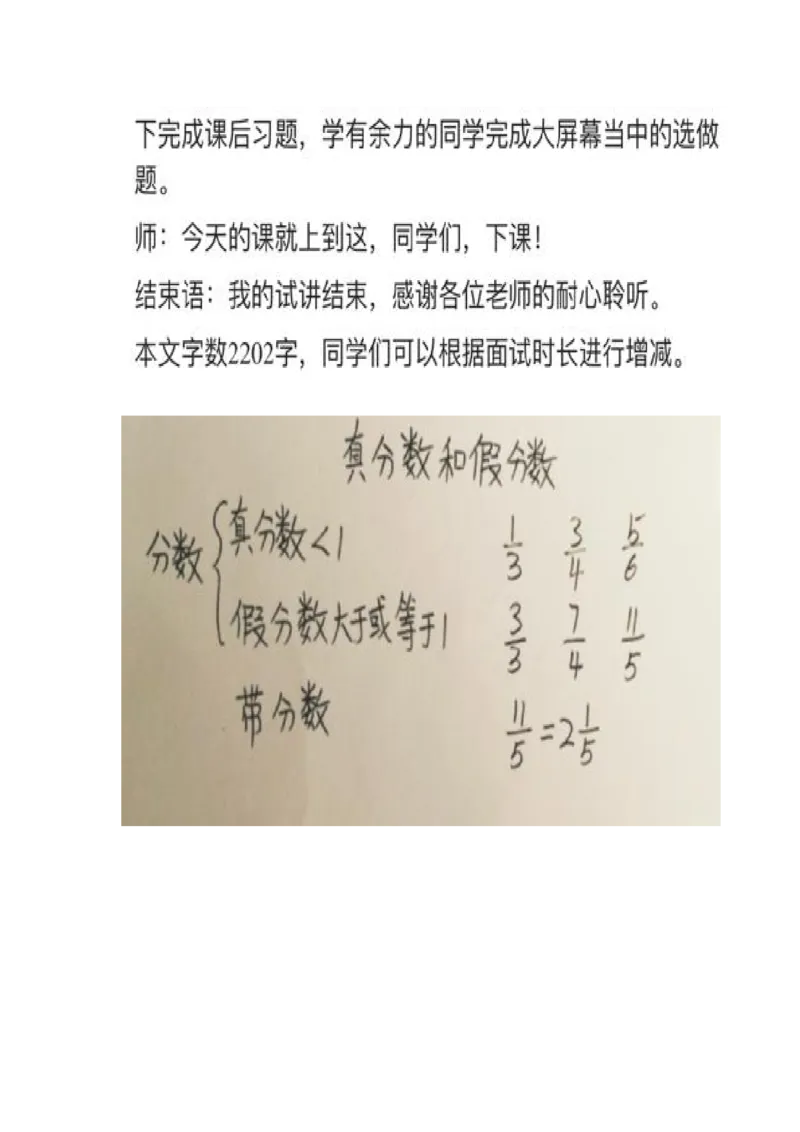 下完成课后习题，学有余力的同学完成大屏幕当中的选做
题。
师：今天的课就上到这，同学们，下课！
结束语：我的试讲结束，感谢各位老师的耐心聆听。
本文字数2202字，同学们可以根据面试时长进行增减。
真分数和假分数
分数 { 真分数<1 1/3 3/4 5/6
假分数大于或等于1 3/3 7/4 11/5
带分数 11/5=2 1/5